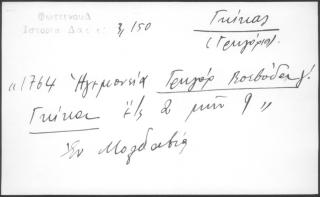 Φωτεινού
Ιστορία Δακ: 3, 150
Γκίκας
(Γρηγόριος).
"1764 Ἡγεμονεία Γρηγόρ Βοεβόδα γ.
Γκίκα ἔτ 2 μην 9"
Ἐν Μολδαβίᾳ